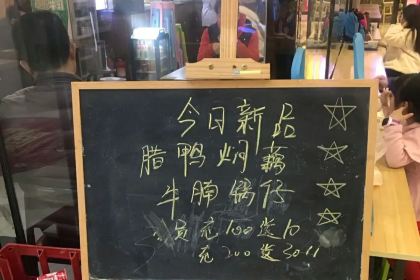 今日新品
腊鸭焖藕
牛腩锅仔
充100送10
充200送30